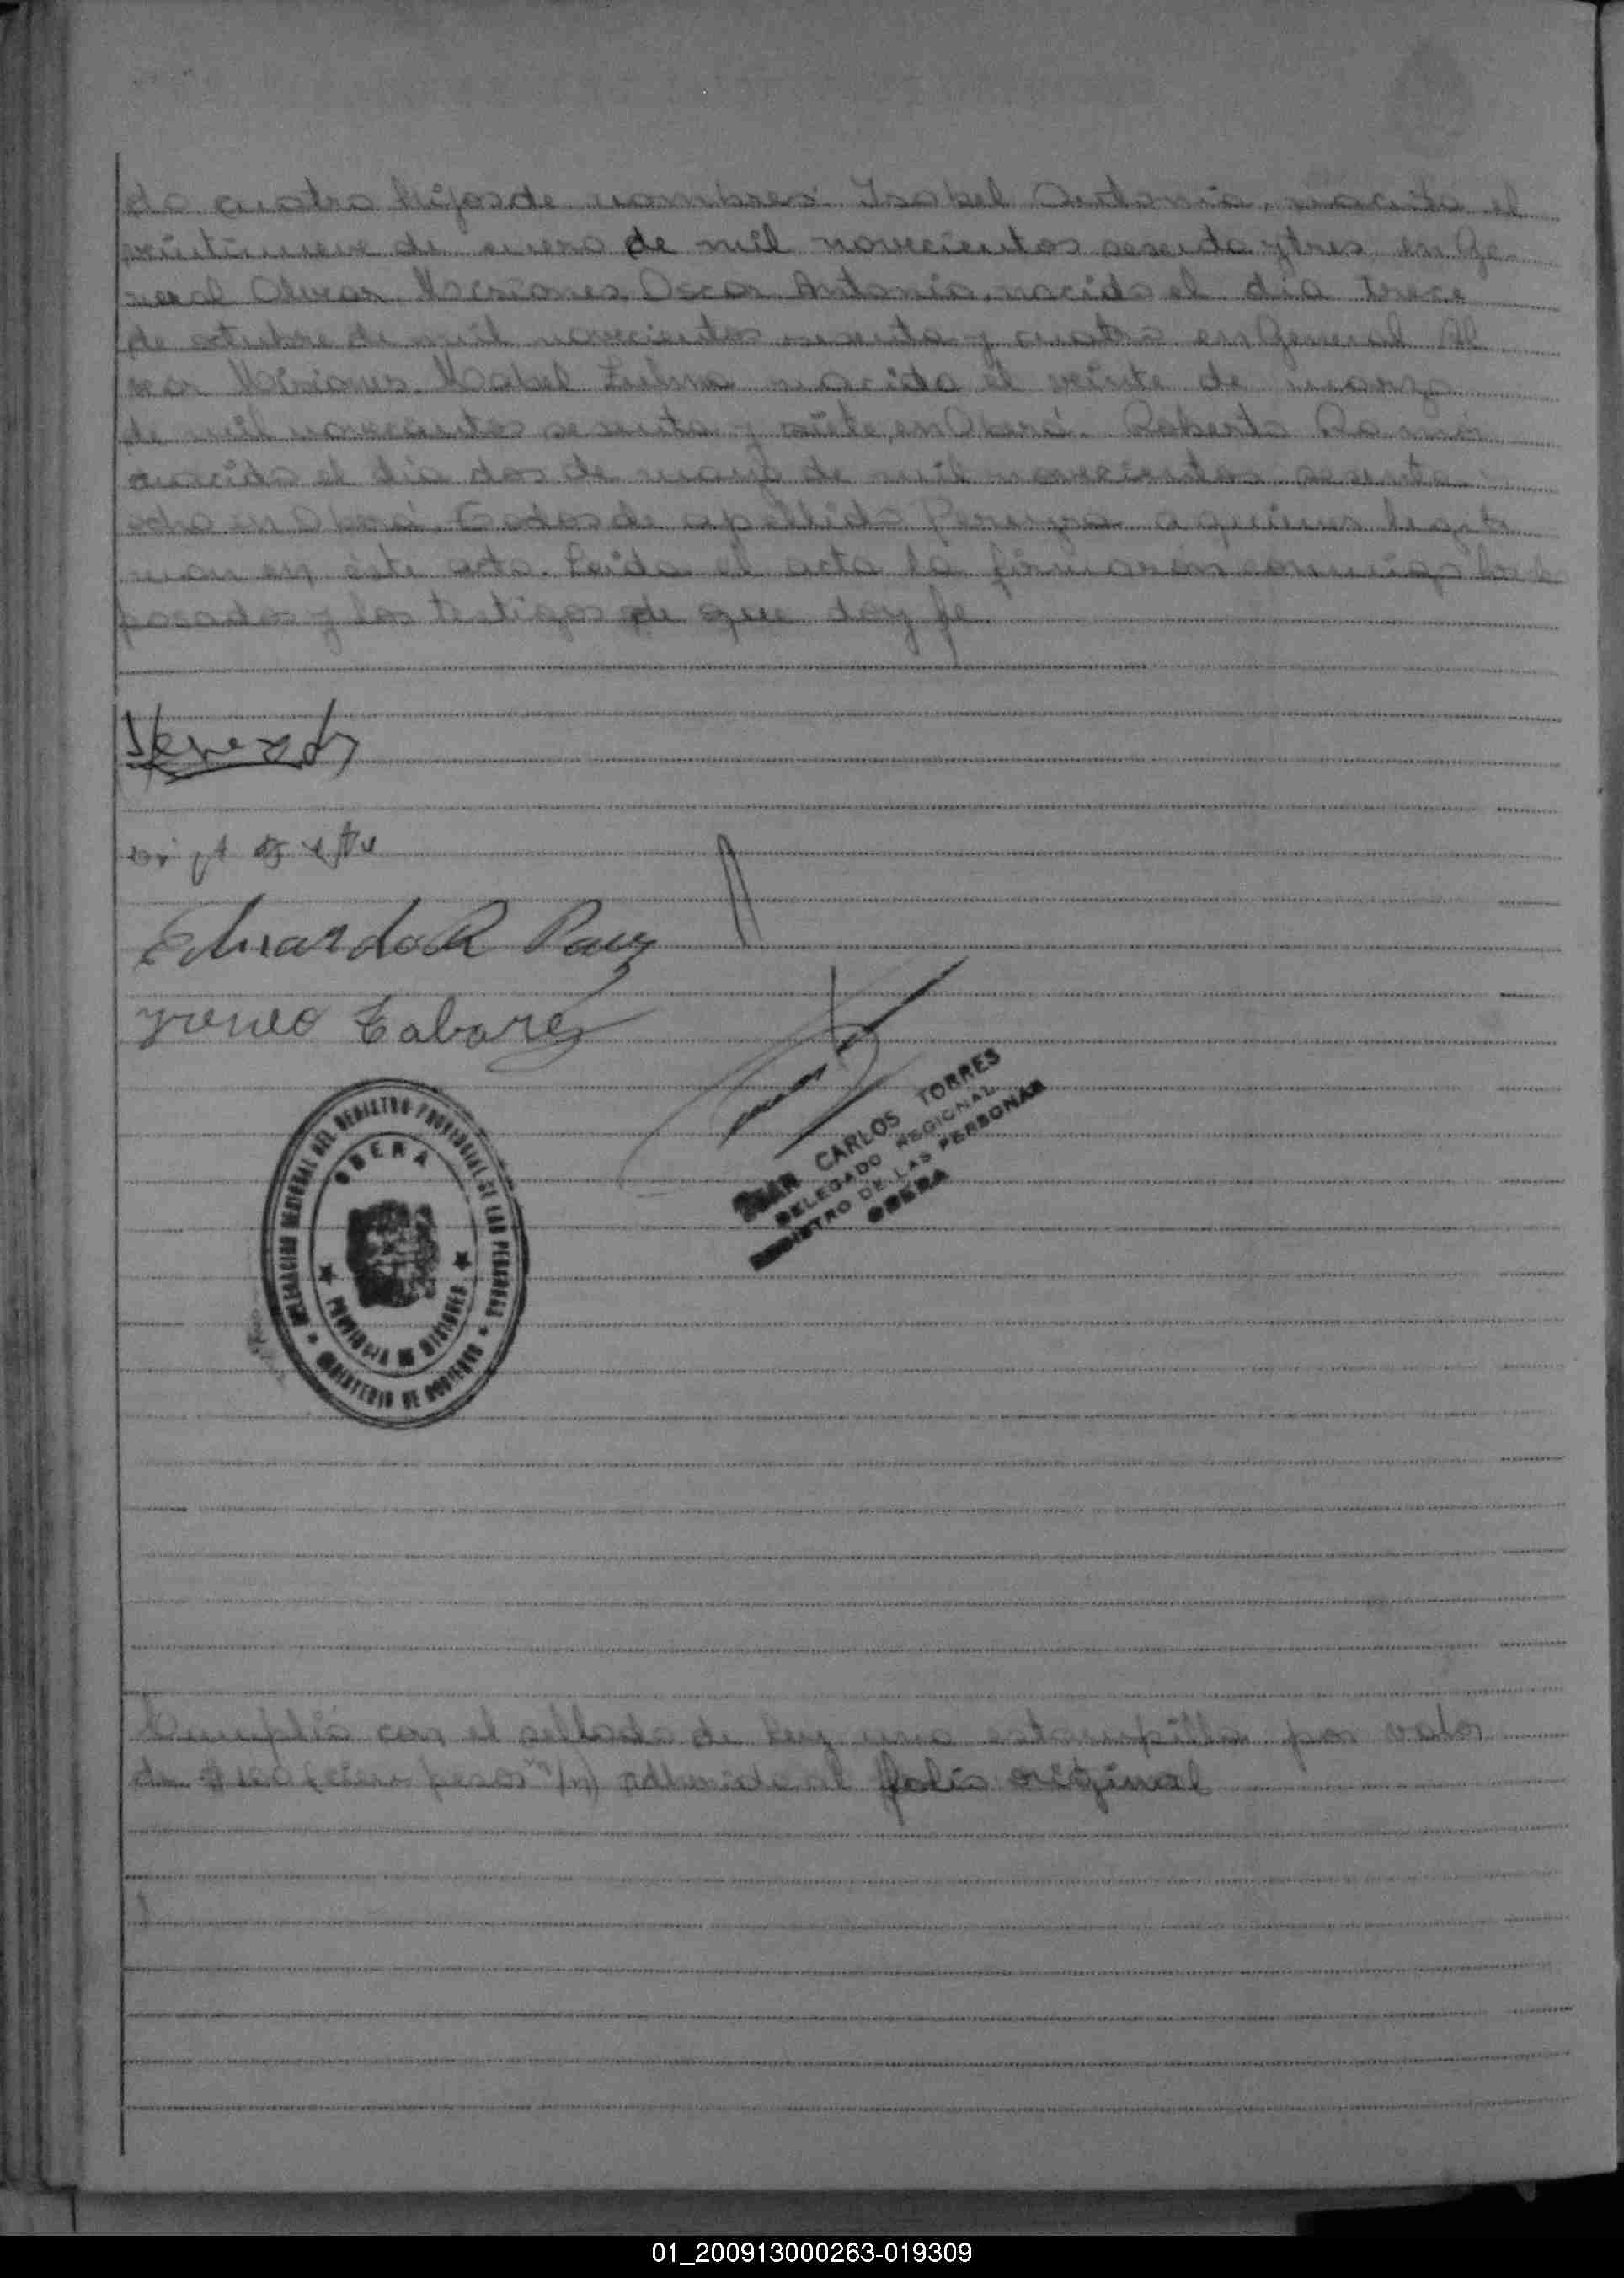 do cuatro hijos de nombres: Isabel Antonia, nacida el
veintinueve de enero de mil novecientos sesenta y tres en Ge
neral Alvear, Misiones, Oscar Antonio, nacido el dia trece
de octubre de mil novecientos sesenta y cuatro en General Al
vear Misiones. Mabel Zulma nacida el veinte de marzo
de mil novecientos sesenta y siete, en Oberá. Roberto Ramón
nacido el dia dos de mayo de mil novecientos sesenta
ocho en Oberá. Todos de apellido a quienes legiti
man en éste acto. Leida el acta la firmaron conmigo los des
posados y los testigos de que doy fe.
Eduardo R Paiz
Yreneo Tabarez
JUAN CARLOS TORRES
DELEGADO REGIONAL
REGISTRO DE LAS PERSONAS
OBERA
DELEGACION REGIONAL DEL REGISTRO PROVINCIAL DE LAS PERSONAS
OBERA
PROVINCIA DE MISIONES
MINISTERIO DE GOBIERNO
Cumplió con el sellado de ley una estampilla por valor
de $ 100 (cien pesos m/n) adherida al folio original
01_200913000263-019309